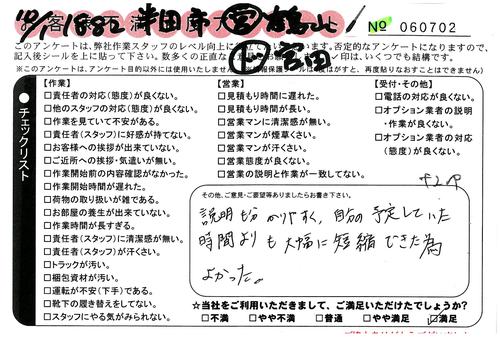 10/1 1882 半田市 営 鶴山
お客様不満 度 大
№ 060702
このアンケートは、弊社作業スタッフのレベル向上に 否定的なアンケートになりますので、
記入後シールを上に貼って下さい。数多くの正直な 印は、いくつでも結構です。
(※このアンケートは、アンケート目的以外には使用いたしません 情報保護シールでは はがすと、再度貼りなおすことはできません)
チェックリスト
【作業】
□責任者の対応(態度)が良くない。
□他のスタッフの対応(態度)が良くない。
□作業を見ていて不安がある。
□責任者(スタッフ)に好感が持てない。
□お客様への挨拶が出来ていない。
□ご近所への挨拶・気遣いが無い。
□作業開始前の内容確認がなかった。
□作業開始時間が遅れた。
□荷物の取り扱いが雑である。
□お部屋の養生が出来ていない。
□作業時間が長すぎる。
□責任者(スタッフ)に清潔感が無い。
□責任者(スタッフ)が汗くさい。
□トラックが汚い。
□梱包資材が汚い。
□運転が不安(下手)である。
□靴下の履き替えをしてない。
□スタッフにやる気がみられない。
【営業】
□見積もり時間に遅れた。
□見積もり時間が長い。
□営業マンに清潔感が無い。
□営業マンが煙草くさい。
□営業マンが汗くさい。
□営業態度が良くない。
□営業の説明と作業が一致してない。
【受付・その他】
□電話の対応が良くない。
□オプション業者の説明
・作業が良くない。
□オプション業者の対応
(態度)が良くない。
その他、ご意見・ご要望等ありましたらお書き下さい。
説明も分かりやすく、自分の予定していた
時間よりも大幅に短縮できた為
よかった。
☆当社をご利用いただきまして、ご満足いただけたでしょうか?
□不満 □やや不満 □普通 □やや満足 □満足